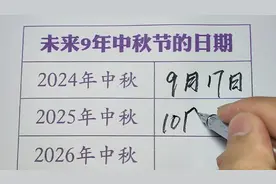 未来9年中秋节的日期
2024年中秋 9月17日
2025年中秋 10
2026年中秋